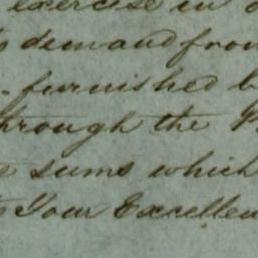 exercise in
demand from
furnished b
through the P
sums which
to Your Excellen